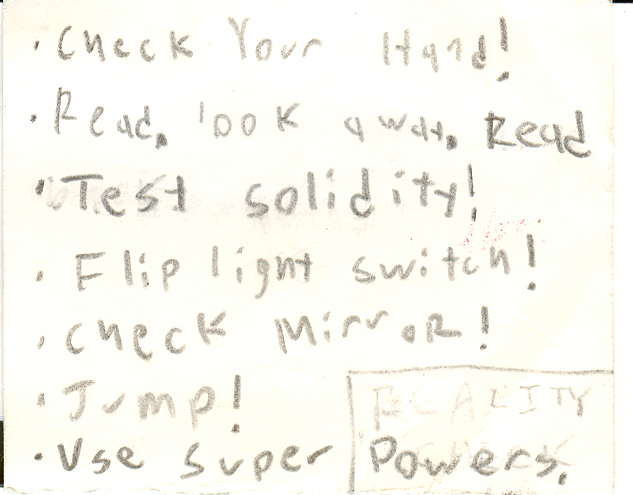 · Check Your Hand!
· Read, look away, Read
· Test solidity!
· Flip light switch!
· Check MirroR!
· Jump!
REALITY
· Use Super Powers.